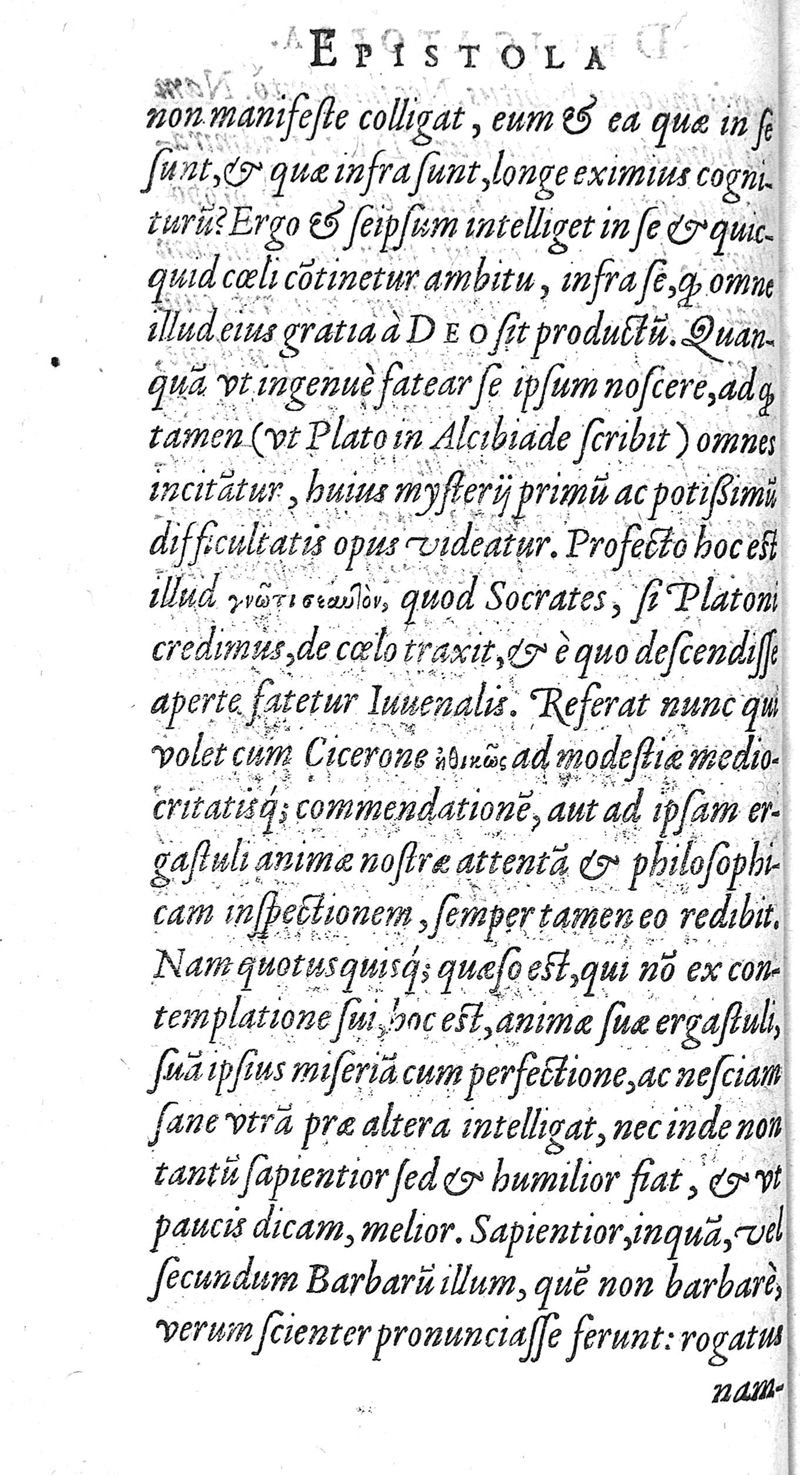 EPISTOLA
non manifeste colligat, eum & ea quæ in se
sunt, & quæ infra sunt, longe eximius cogni-
turũ? Ergo & seipsum intelliget in se & quic-
quid cœli cõtinetur ambitu, infra se, ꝙ omne
illud eius gratia à DEO sit productũ. Quan-
quã vt ingenuè fatear se ipsum noscere, ad ꝙ
tamen (vt Plato in Alcibiade scribit) omnes
incitãtur, huius mysterij primũ ac potißimũ
difficultatis opus videatur. Profecto hoc est
illud γνῶτι σεαυτὸν, quod Socrates, si Platoni
credimus, de cœlo traxit, & è quo descendisse
aperte fatetur Iuuenalis. Referat nunc qui
volet cum Cicerone ἠθικῶς ad modestiæ medio-
critatisq́; commendationẽ, aut ad ipsam er-
gastuli animæ nostræ attentã & philosophi-
cam inspectionem, semper tamen eo redibit.
Nam quotusquisq́; quæso est, qui nõ ex con-
templatione sui, hoc est, animæ suæ ergastuli,
suã ipsius miseriã cum perfectione, ac nesciam
sane vtrã præ altera intelligat, nec inde non
tantũ sapientior sed & humilior fiat, & vt
paucis dicam, melior. Sapientior, inquã, vel
secundum Barbarũ illum, quẽ non barbarè,
verum scienter pronunciasse ferunt: rogatus
nam-